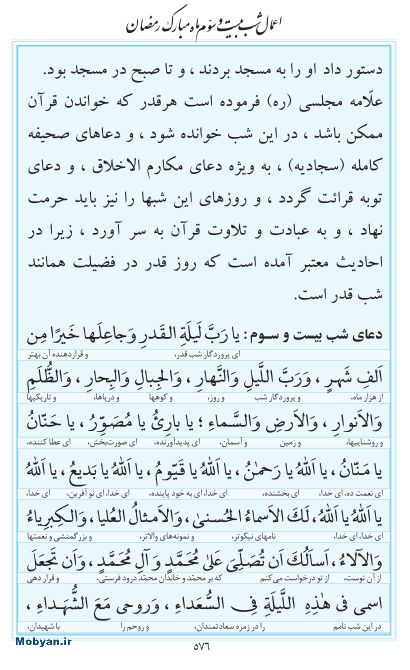 اعمال شب بیست و سوّم ماه مبارک رمضان
دستور داد او را به مسجد بردند ، و تا صبح در مسجد بود.
علّامه مجلسی (ره) فرموده است هرقدر که خواندن قرآن
ممکن باشد ، در این شب خوانده شود ، و دعاهای صحیفه
کامله (سجادیه) ، به ویژه دعای مکارم الاخلاق ، و دعای
توبه قرائت گردد ، و روزهای این شبها را نیز باید حرمت
نهاد ، و به عبادت و تلاوت قرآن به سر آورد ، زیرا در
احادیث معتبر آمده است که روز قدر در فضیلت همانند
شب قدر است.
دعای شب بیست و سوم: یا رَبَّ لَیلَةِ القَدرِ وَجاعِلَها خَیرًا مِن
ای پروردگار شب قدر، و قراردهنده آن بهتر
اَلفِ شَهرٍ ، وَرَبَّ اللَّیلِ وَالنَّهارِ ، وَالجِبالِ وَالبِحارِ ، وَالظُّلَمِ
از هزار ماه، و پروردگار شب و روز، و کوهها و دریاها، و تاریکیها
وَالاَنوارِ ، وَالاَرضِ وَالسَّماءِ ؛ یا بارِئُ یا مُصَوِّرُ ، یا حَنّانُ
و روشناییها، و زمین و آسمان، ای پدیدآورنده، ای صورت‌بخش، ای عطا کننده،
یا مَنّانُ ، یا اَللهُ یا رَحمٰنُ ، یا اَللهُ یا قَیّومُ ، یا اَللهُ یا بَدیعُ ، یا اَللهُ
ای نعمت ده، ای خدا، ای بخشنده، ای خدا، ای به خود پاینده، ای خدا، ای نو آفرین، ای خدا،
یا اَللهُ یا اَللهُ ، لَکَ الاَسماءُ الحُسنیٰ ، وَالاَمثالُ العُلیا ، وَالکِبرِیاءُ
ای خدا، ای خدا، نامهای نیکوتر، و نمونه‌های والاتر، و بزرگمنشی و نعمتها
وَالآلاءُ ، اَسأَلُکَ اَن تُصَلِّیَ عَلیٰ مُحَمَّدٍ وَآلِ مُحَمَّدٍ ، وَاَن تَجعَلَ
از آن توست، از تو درخواست می‌کنم که بر محمّد و خاندان محمّد درود فرستی، و قرار دهی
اسمی فی هٰذِهِ اللَّیلَةِ فِی السُّعَداءِ ، وَروحی مَعَ الشُّهَداءِ ،
در این شب نامم را در زمره سعادتمندان، و روحم را با شهیدان،
۵۷۶
Mobyan.ir